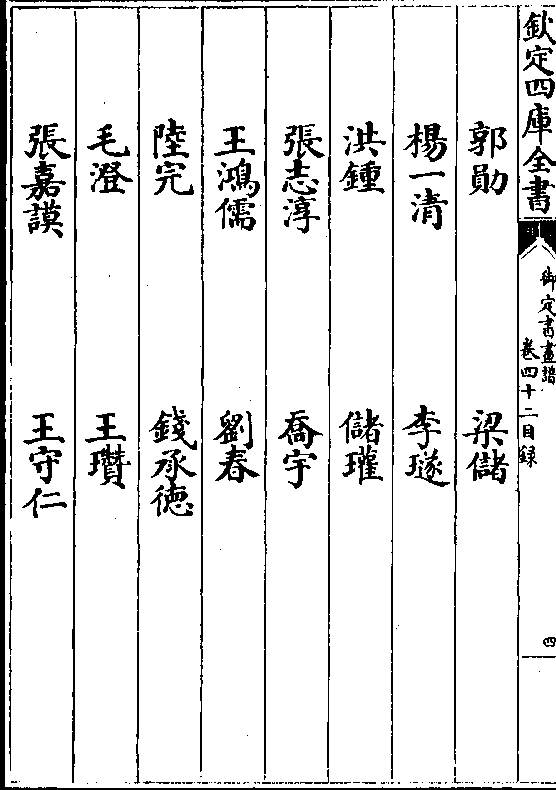 欽定四庫全書
御定書畫譜
卷四十二目録
四
郭勛 梁儲
楊一清 李璲
洪鍾 儲瓘
張志淳 喬宇
王鴻儒 劉春
陸完 錢承德
毛澄 王瓚
張嘉謨 王守仁